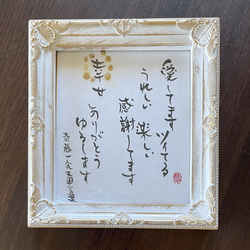 愛してます ツイてる
うれしい 楽しい
感謝してます
幸せ ありがとう
ゆるします